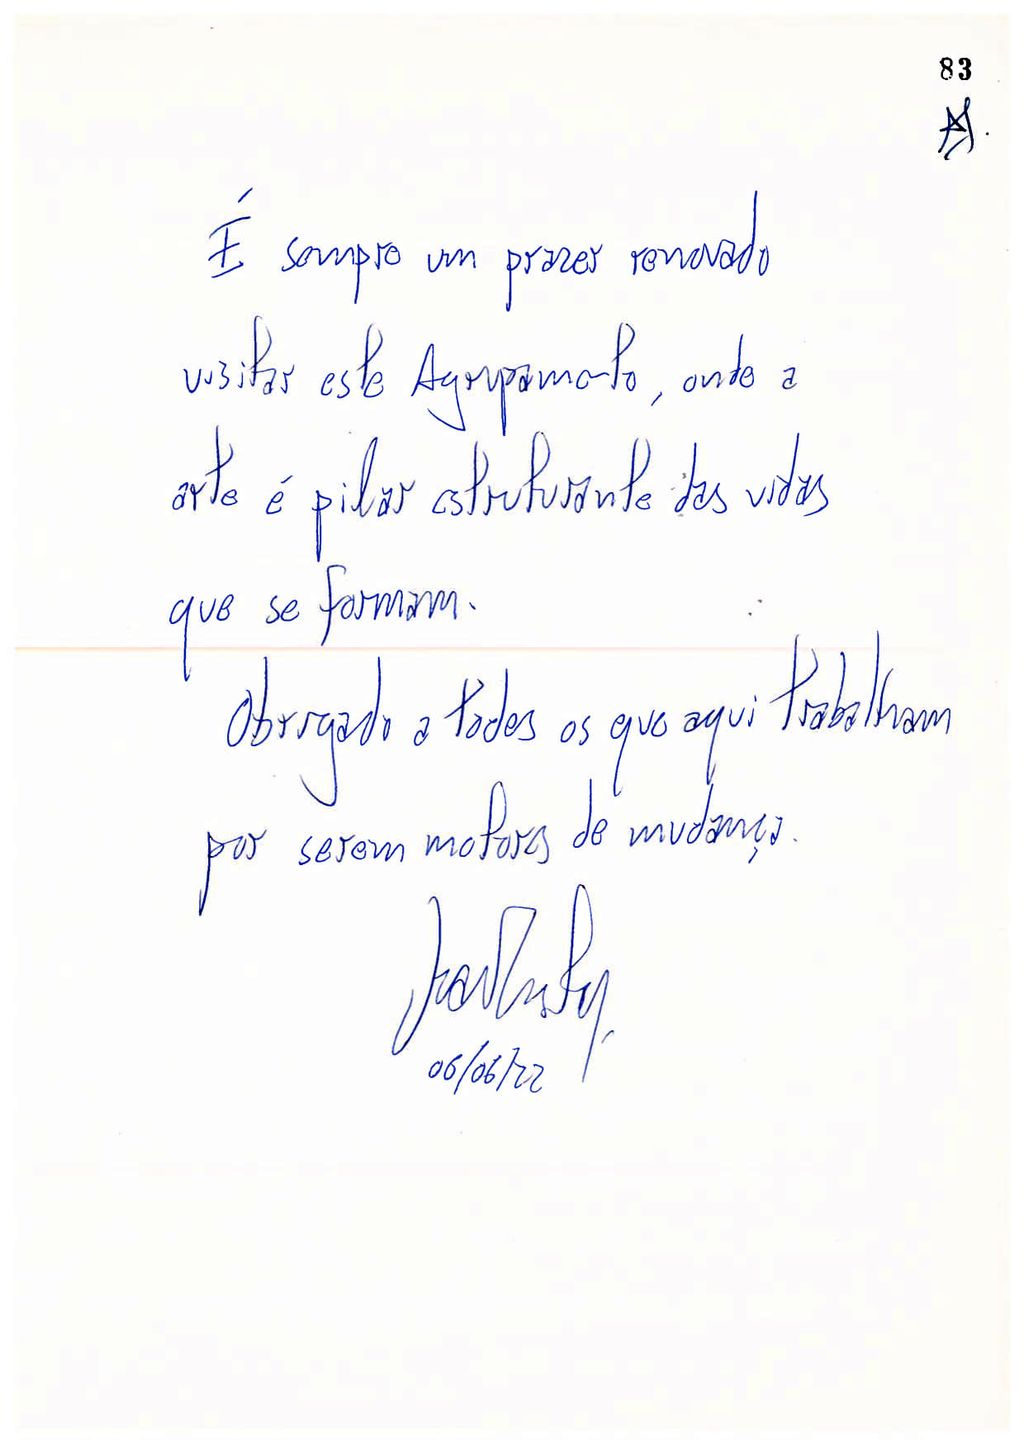 83
É sempre um prazer renovado
visitar este Agrupamento, onde a
arte é pilar estruturante das vidas
que se formam.
Obrigado a todos os que aqui trabalham
por serem motores de mudança.
06/06/22